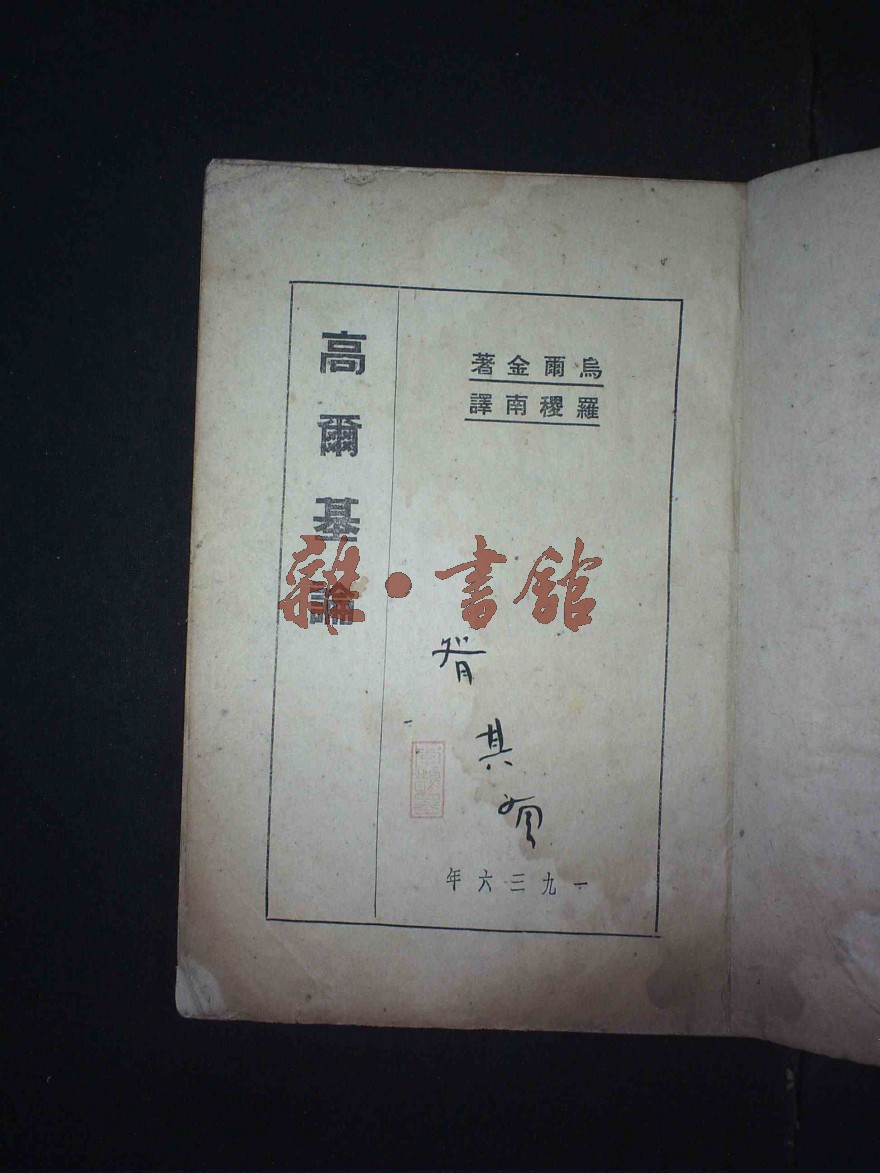 高爾基論
烏爾金著
羅稷南譯
雜·書館
其
一九三六年